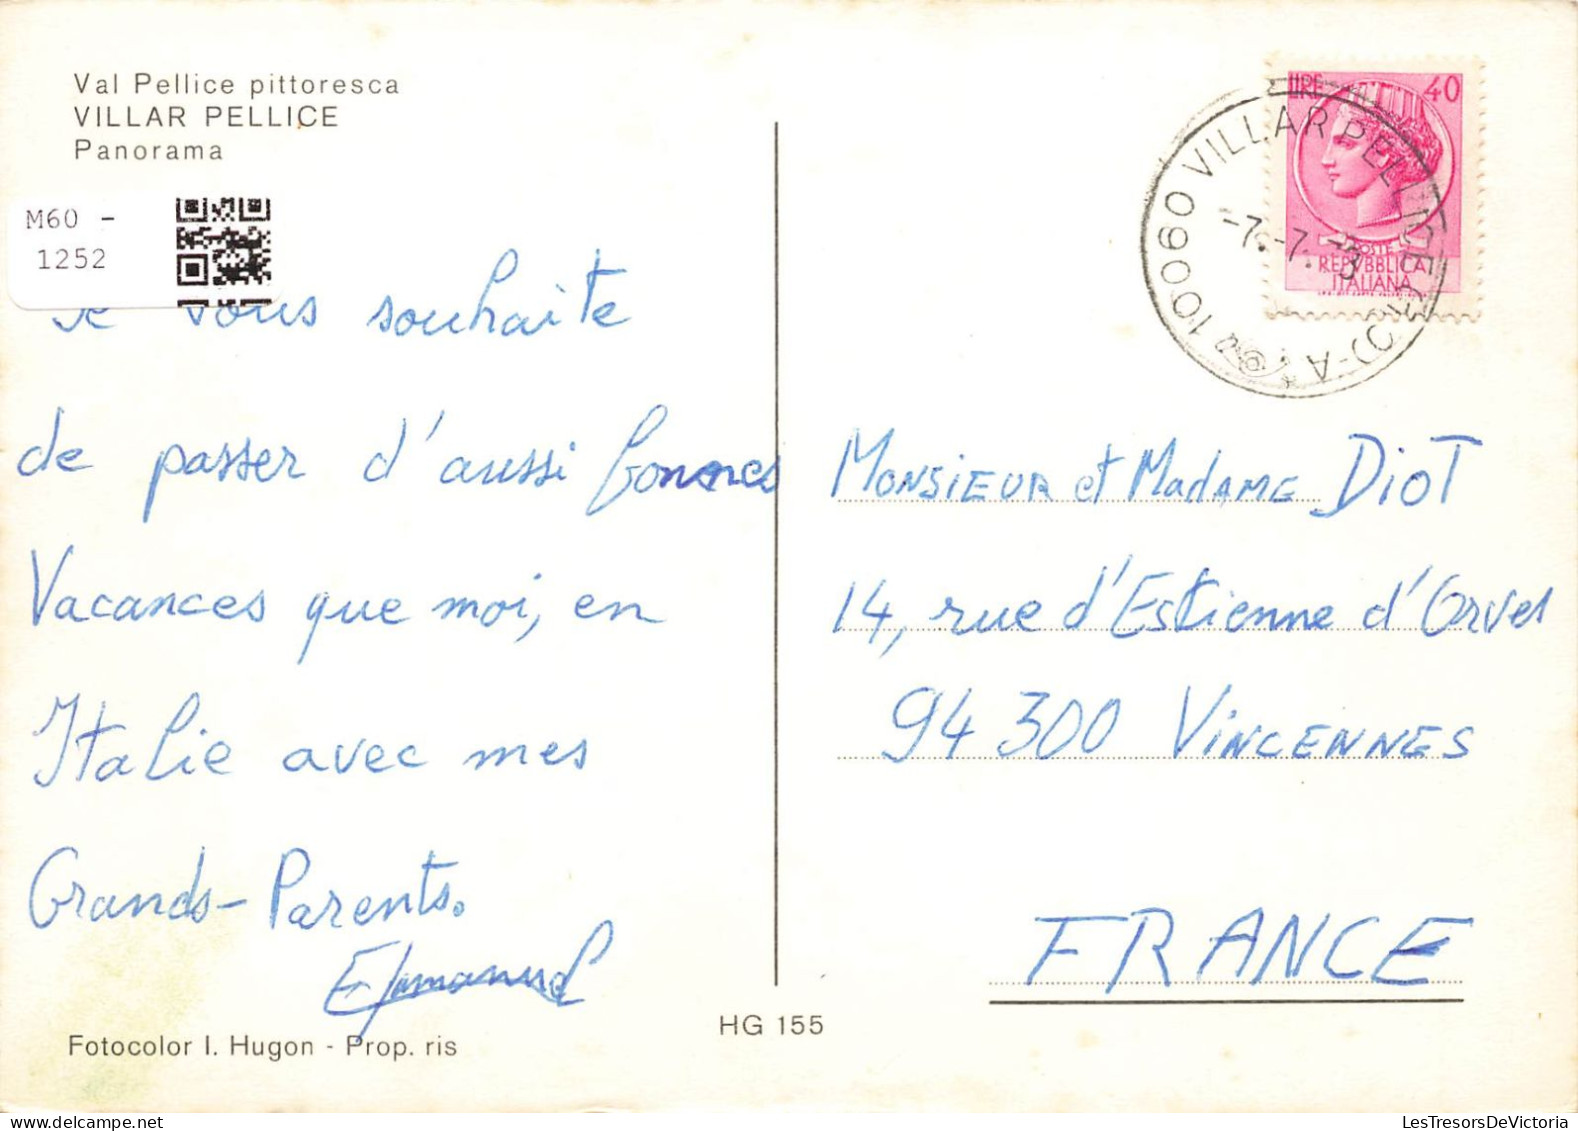 Val Pellice pittoresca
VILLAR PELLICE
Panorama
M60 -
1252
Je vous souhaite
de passer d'aussi bonnes
Vacances que moi, en
Italie avec mes
Grands-Parents.
Emmanuel
Fotocolor I. Hugon - Prop. ris
HG 155
LIRE 40
POSTE
REPVBBLICA
ITALIANA
10060 VILLAR PELLICE
-7.-7.
Monsieur et Madame Diot
14, rue d'Estienne d'Orves
94 300 Vincennes
FRANCE
LesTresorsDeVictoria